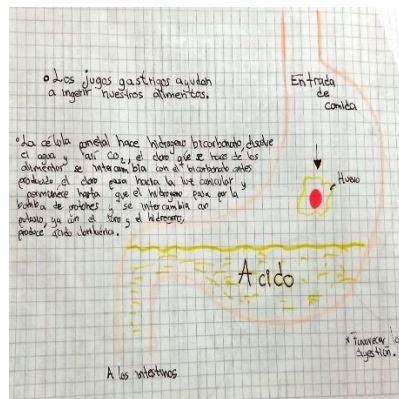 • Los jugos gastrigos ayudan
a ingerir nuestros alimentos.
Entrada
de
comida
• La célula parietal hace hidrogeno bicarbonato, disuelve
el agua y así CO₂, el cloro que se trae de los
alimentos se intercambia con el bicarbonato antes
producido, el cloro pasa hacia la luz canicular y
permanece hasta que el hidrogeno pasa por la
bomba de protones y se intercambia con
potasio, ya con el cloro y el hidrogeno,
produce ácido
Huevo
Acido
* Favorecer la
digestión.
A los intestinos